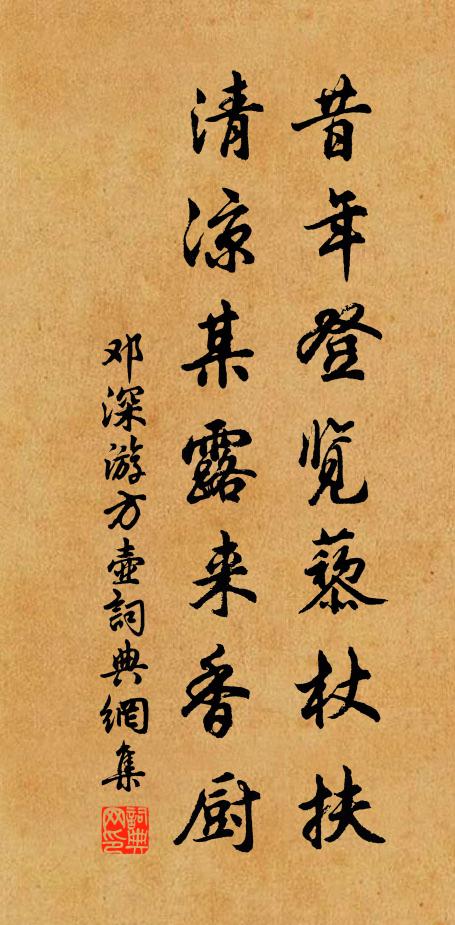 昔年登览藜杖扶
清凉某露来香厨
邓深游方壶詞典網集
詞典網印